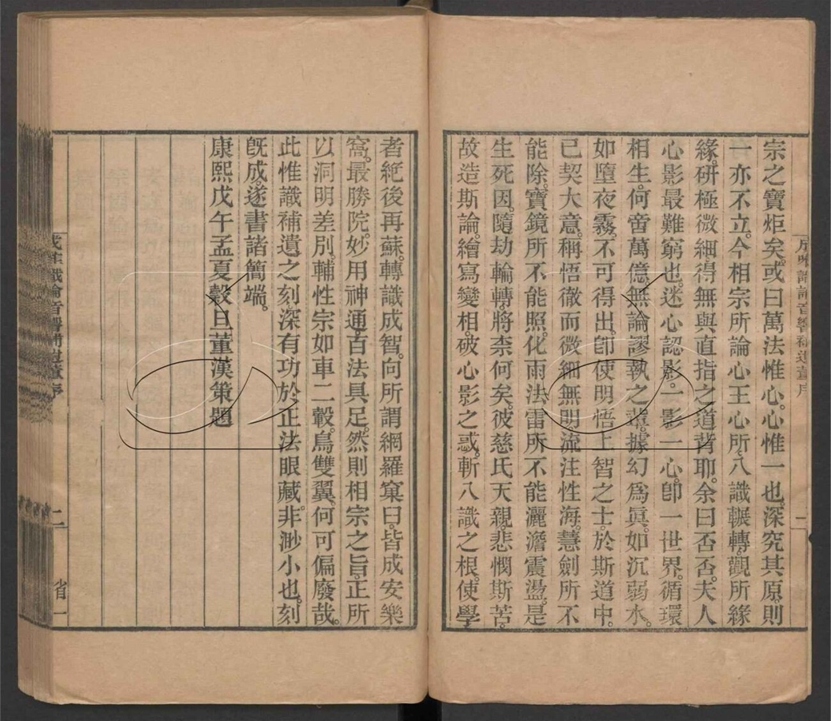 宗之寶炬矣。或曰萬法惟心。心惟一也。深究其原。則
一亦不立。今相宗所論心王心所。八識輾轉。觀所緣
緣。研極微細得無與直指之道背耶。余曰否否。夫人
心影最難窮也。迷心認影。一影一心。卽一世界。循環
相生。何啻萬億。無論謬執之輩。據幻爲眞。如沉弱水。
如墮夜霧。不可得出。卽使明悟上智之士。於斯道中。
已契大意。稱悟徹而微細無明流注性海。慧劍所不
能除。寶鏡所不能照。化雨法雷所不能灑澹震盪。是
生死因。隨劫輪轉將柰何矣。彼慈氏天親。悲憫斯苦。
故造斯論。繪寫變相。破心影之惑。斬八識之根。使學
者絕後再蘇。轉識成智。向所謂網羅窠臼。皆成安樂
窩。最勝院。妙用神通。百法具足。然則相宗之旨。正所
以洞明差別。輔性宗如車二轂。鳥雙翼。何可偏廢哉。
此惟識補遺之刻深有功於正法眼藏。非渺小也。刻
旣成。遂書諸簡端。
康熙戊午孟夏穀旦董漢策題
二
省一